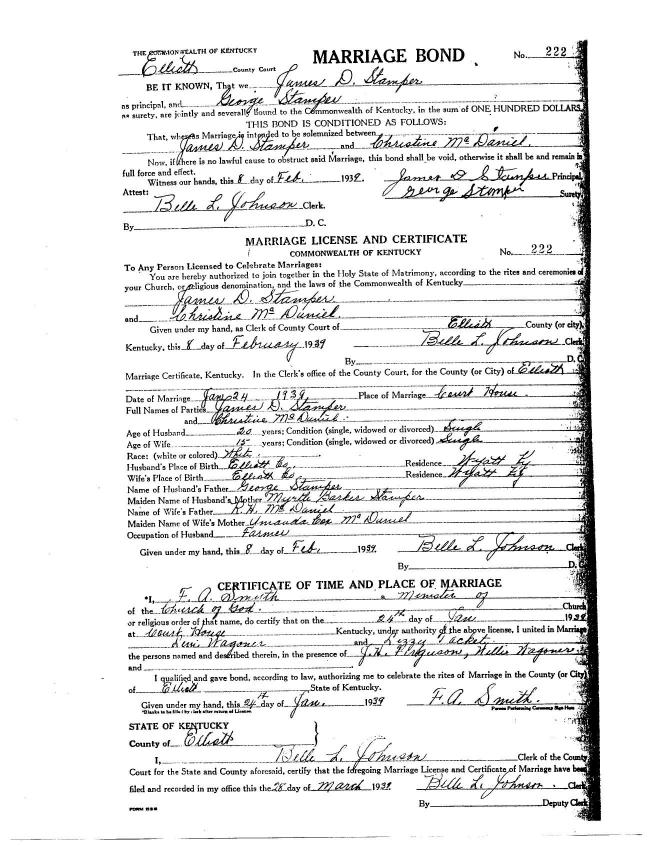 THE COMMONWEALTH OF KENTUCKY
MARRIAGE BOND No. 222
Elliott County Court
BE IT KNOWN, That we James D. Stamper
as principal, and George Stamper
as surety, are jointly and severally bound to the Commonwealth of Kentucky, in the sum of ONE HUNDRED DOLLARS.
THIS BOND IS CONDITIONED AS FOLLOWS:
That, whereas Marriage is intended to be solemnized between
James D. Stamper and Christine McDaniel
Now, if there is no lawful cause to obstruct said Marriage, this bond shall be void, otherwise it shall be and remain in
full force and effect.
Witness our hands, this 8 day of Feb. 1939. James D Stamper Principal
Attest: George Stamper Surety
Belle L. Johnson Clerk.
By D. C.
MARRIAGE LICENSE AND CERTIFICATE
COMMONWEALTH OF KENTUCKY No. 222
To Any Person Licensed to Celebrate Marriages:
You are hereby authorized to join together in the Holy State of Matrimony, according to the rites and ceremonies of
your Church, or religious denomination, and the laws of the Commonwealth of Kentucky
James D. Stamper
and Christine McDaniel.
Given under my hand, as Clerk of County Court of Elliott County (or city),
Kentucky, this 8 day of February 1939 Belle L. Johnson Clerk
By D. C.
Marriage Certificate, Kentucky. In the Clerk's office of the County Court, for the County (or City) of Elliott
Date of Marriage Jan 24 1939 Place of Marriage Court House.
Full Names of Parties James D. Stamper
and Christine McDaniel
Age of Husband 20 years; Condition (single, widowed or divorced) Single
Age of Wife 15 years; Condition (single, widowed or divorced) Single
Race: (white or colored) White.
Husband's Place of Birth Elliott Co. Residence Wyatt Ky
Wife's Place of Birth Elliott Co Residence Wyatt Ky
Name of Husband's Father George Stamper
Maiden Name of Husband's Mother Myrtle Barker Stamper
Name of Wife's Father R. H. McDaniel
Maiden Name of Wife's Mother Amanda Cox McDaniel
Occupation of Husband Farmer
Given under my hand, this 8 day of Feb. 1939. Belle L. Johnson Clerk
By D. C.
CERTIFICATE OF TIME AND PLACE OF MARRIAGE
*I, F. A. Smith a Minister of
of the Church of God. Church
or religious order of that name, do certify that on the 24th day of Jan 1939
at Court House Kentucky, under authority of the above license, I united in Marriage
Wagoner and Lizzy Tacket
the persons named and described therein, in the presence of J. H. Ferguson, Willie Wagoner
and
I qualified and gave bond, according to law, authorizing me to celebrate the rites of Marriage in the County (or City)
of Elliott State of Kentucky.
Given under my hand, this 24th day of Jan. 1939 F. A. Smith.
Person Performing Ceremony Sign Here
STATE OF KENTUCKY
County of Elliott
I, Belle L. Johnson Clerk of the County
Court for the State and County aforesaid, certify that the foregoing Marriage License and Certificate of Marriage have been
filed and recorded in my office this the 28 day of March 1939. Belle L. Johnson. Clerk
By Deputy Clerk